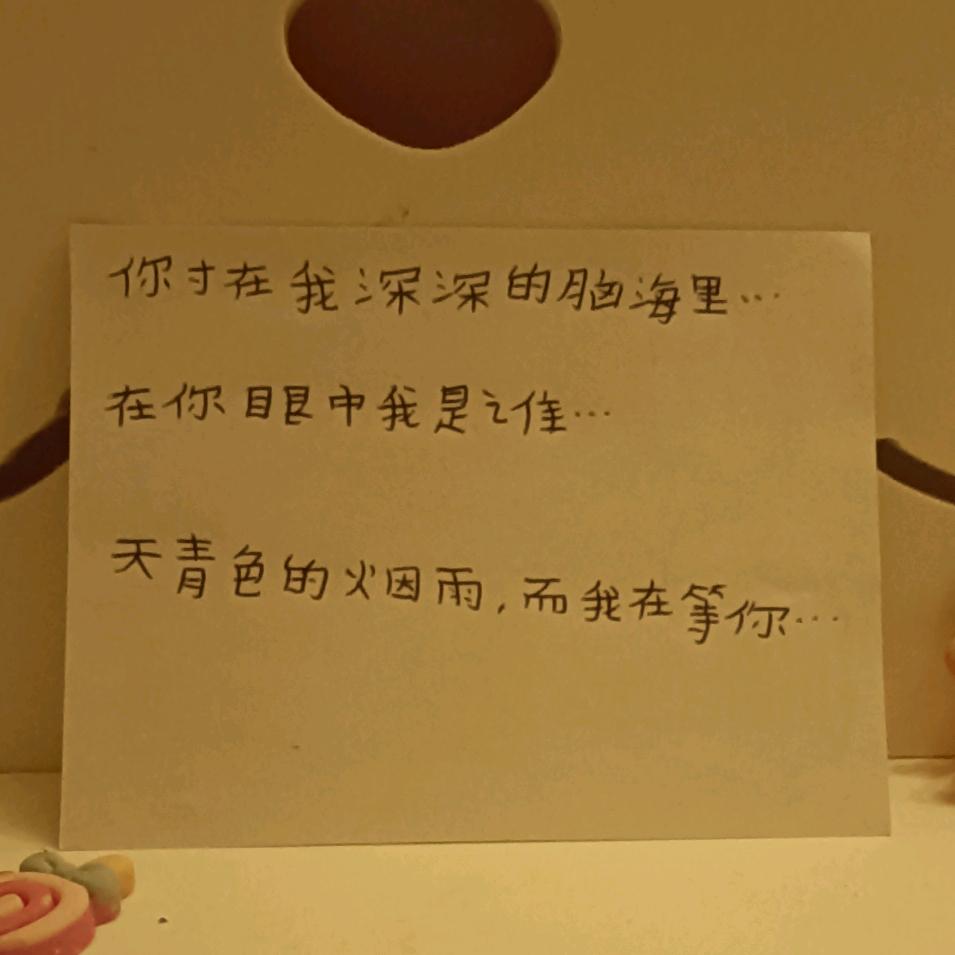 你寸在我深深的脑海里…
在你眼中我是谁…
天青色的烟雨,而我在等你…